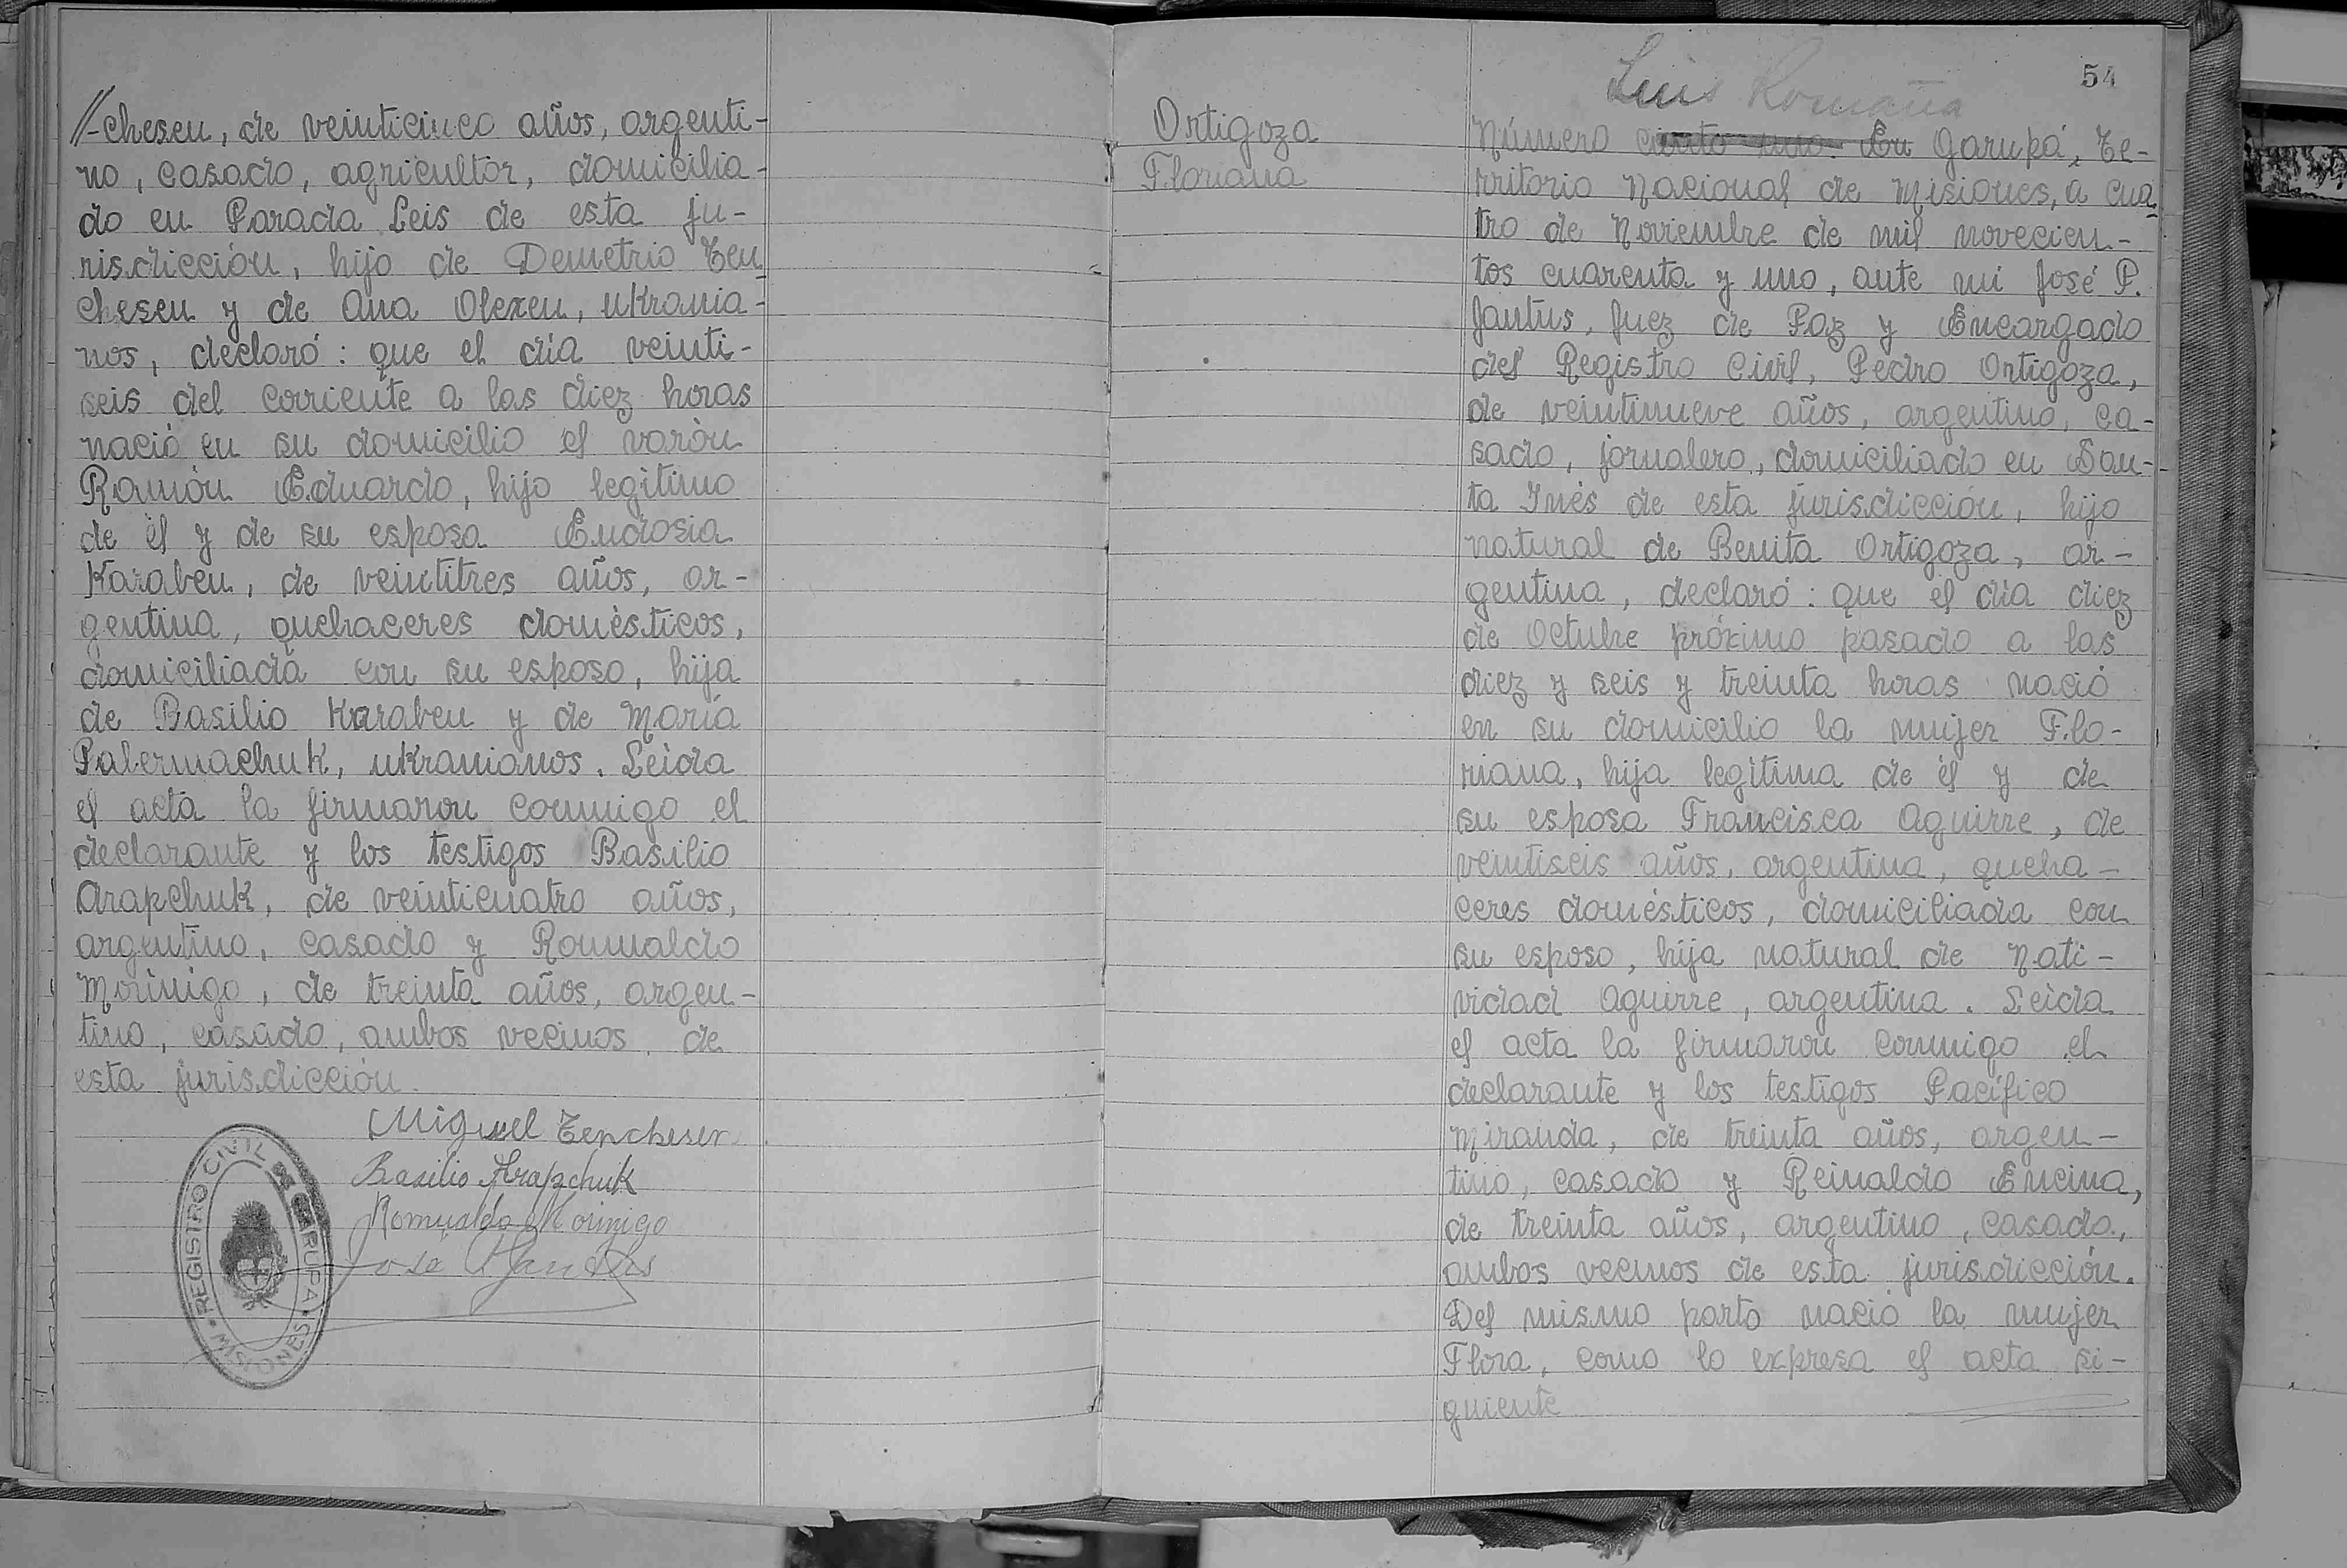 //-chesen, de veinticinco años, argenti-
no, casado, agricultor, domicilia-
do en Parada Leis de esta ju-
risdicción, hijo de Demetrio Ten-
chesen y de Ana Olexen, ukrania-
nos, declaró: que el día veinti-
seis del corriente a las diez horas
nació en su domicilio el varón
Ramón Eduardo, hijo legítimo
de él y de su esposa Eudosia
Karaben, de veintitres años, ar-
gentina, quehaceres domésticos,
domiciliada con su esposo, hija
de Basilio Karaben y de María
Palermachuk, ukranianos. Leída
el acta la firmaron conmigo el
declarante y los testigos Basilio
Arapchuk, de veinticuatro años,
argentino, casado y Romualdo
Morinigo, de treinta años, argen-
tino, casado, ambos vecinos de
esta jurisdicción.
Miguel Tenchesen
Basilio Arapchuk
Romualdo Morinigo
José P. Jantus
REGISTRO CIVIL DE GARUPA
MISIONES
54
Luis Romaña
Ortigoza
Floriana
Número ciento uno. En Garupá, Te-
rritorio Nacional de Misiones, a cua-
tro de Noviembre de mil novecien-
tos cuarenta y uno, ante mi José P.
Jantus, Juez de Paz y Encargado
del Registro Civil, Pedro Ortigoza,
de veintinueve años, argentino, ca-
sado, jornalero, domiciliado en San-
ta Inés de esta jurisdicción, hijo
natural de Benita Ortigoza, ar-
gentina, declaró: que el día diez
de Octubre próximo pasado a las
diez y seis y treinta horas nació
en su domicilio la mujer Flo-
riana, hija legítima de él y de
su esposa Francisca Aguirre, de
veintiseis años, argentina, queha-
ceres domésticos, domiciliada con
su esposo, hija natural de Nati-
vidad Aguirre, argentina. Leída
el acta la firmaron conmigo el
declarante y los testigos Pacífico
Miranda, de treinta años, argen-
tino, casado y Reinaldo Encina,
de treinta años, argentino, casado,
ambos vecinos de esta jurisdicción.
Del mismo parto nació la mujer
Flora, como lo expresa el acta si-
guiente